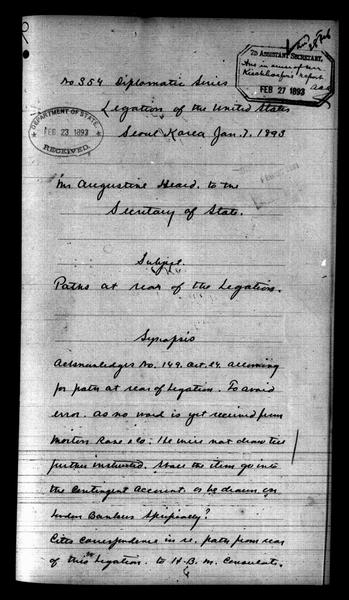 2D ASSISTANT SECRETARY,
FEB 27 1893
No. 354 Diplomatic Series
Legation of the United States
Seoul Korea Jan. 7. 1893
DEPARTMENT OF STATE
FEB 23 1893
RECEIVED.
Mr Augustine Heard. to the
Secretary of State.
Subject.
Paths at rear of the Legation.
Synopsis
Acknowledges No. 149. Oct. 24. allowing
for path at rear of Legation. To avoid
error. as no word is yet received from
Morton Rose & Co. He will not draw till
further instructed. Shall the item go into
the Contingent Account. or be drawn on
London Bankers Specifically?
Cites correspondence in re. path from rear
of this Legation. to H. B. M. Consulate.